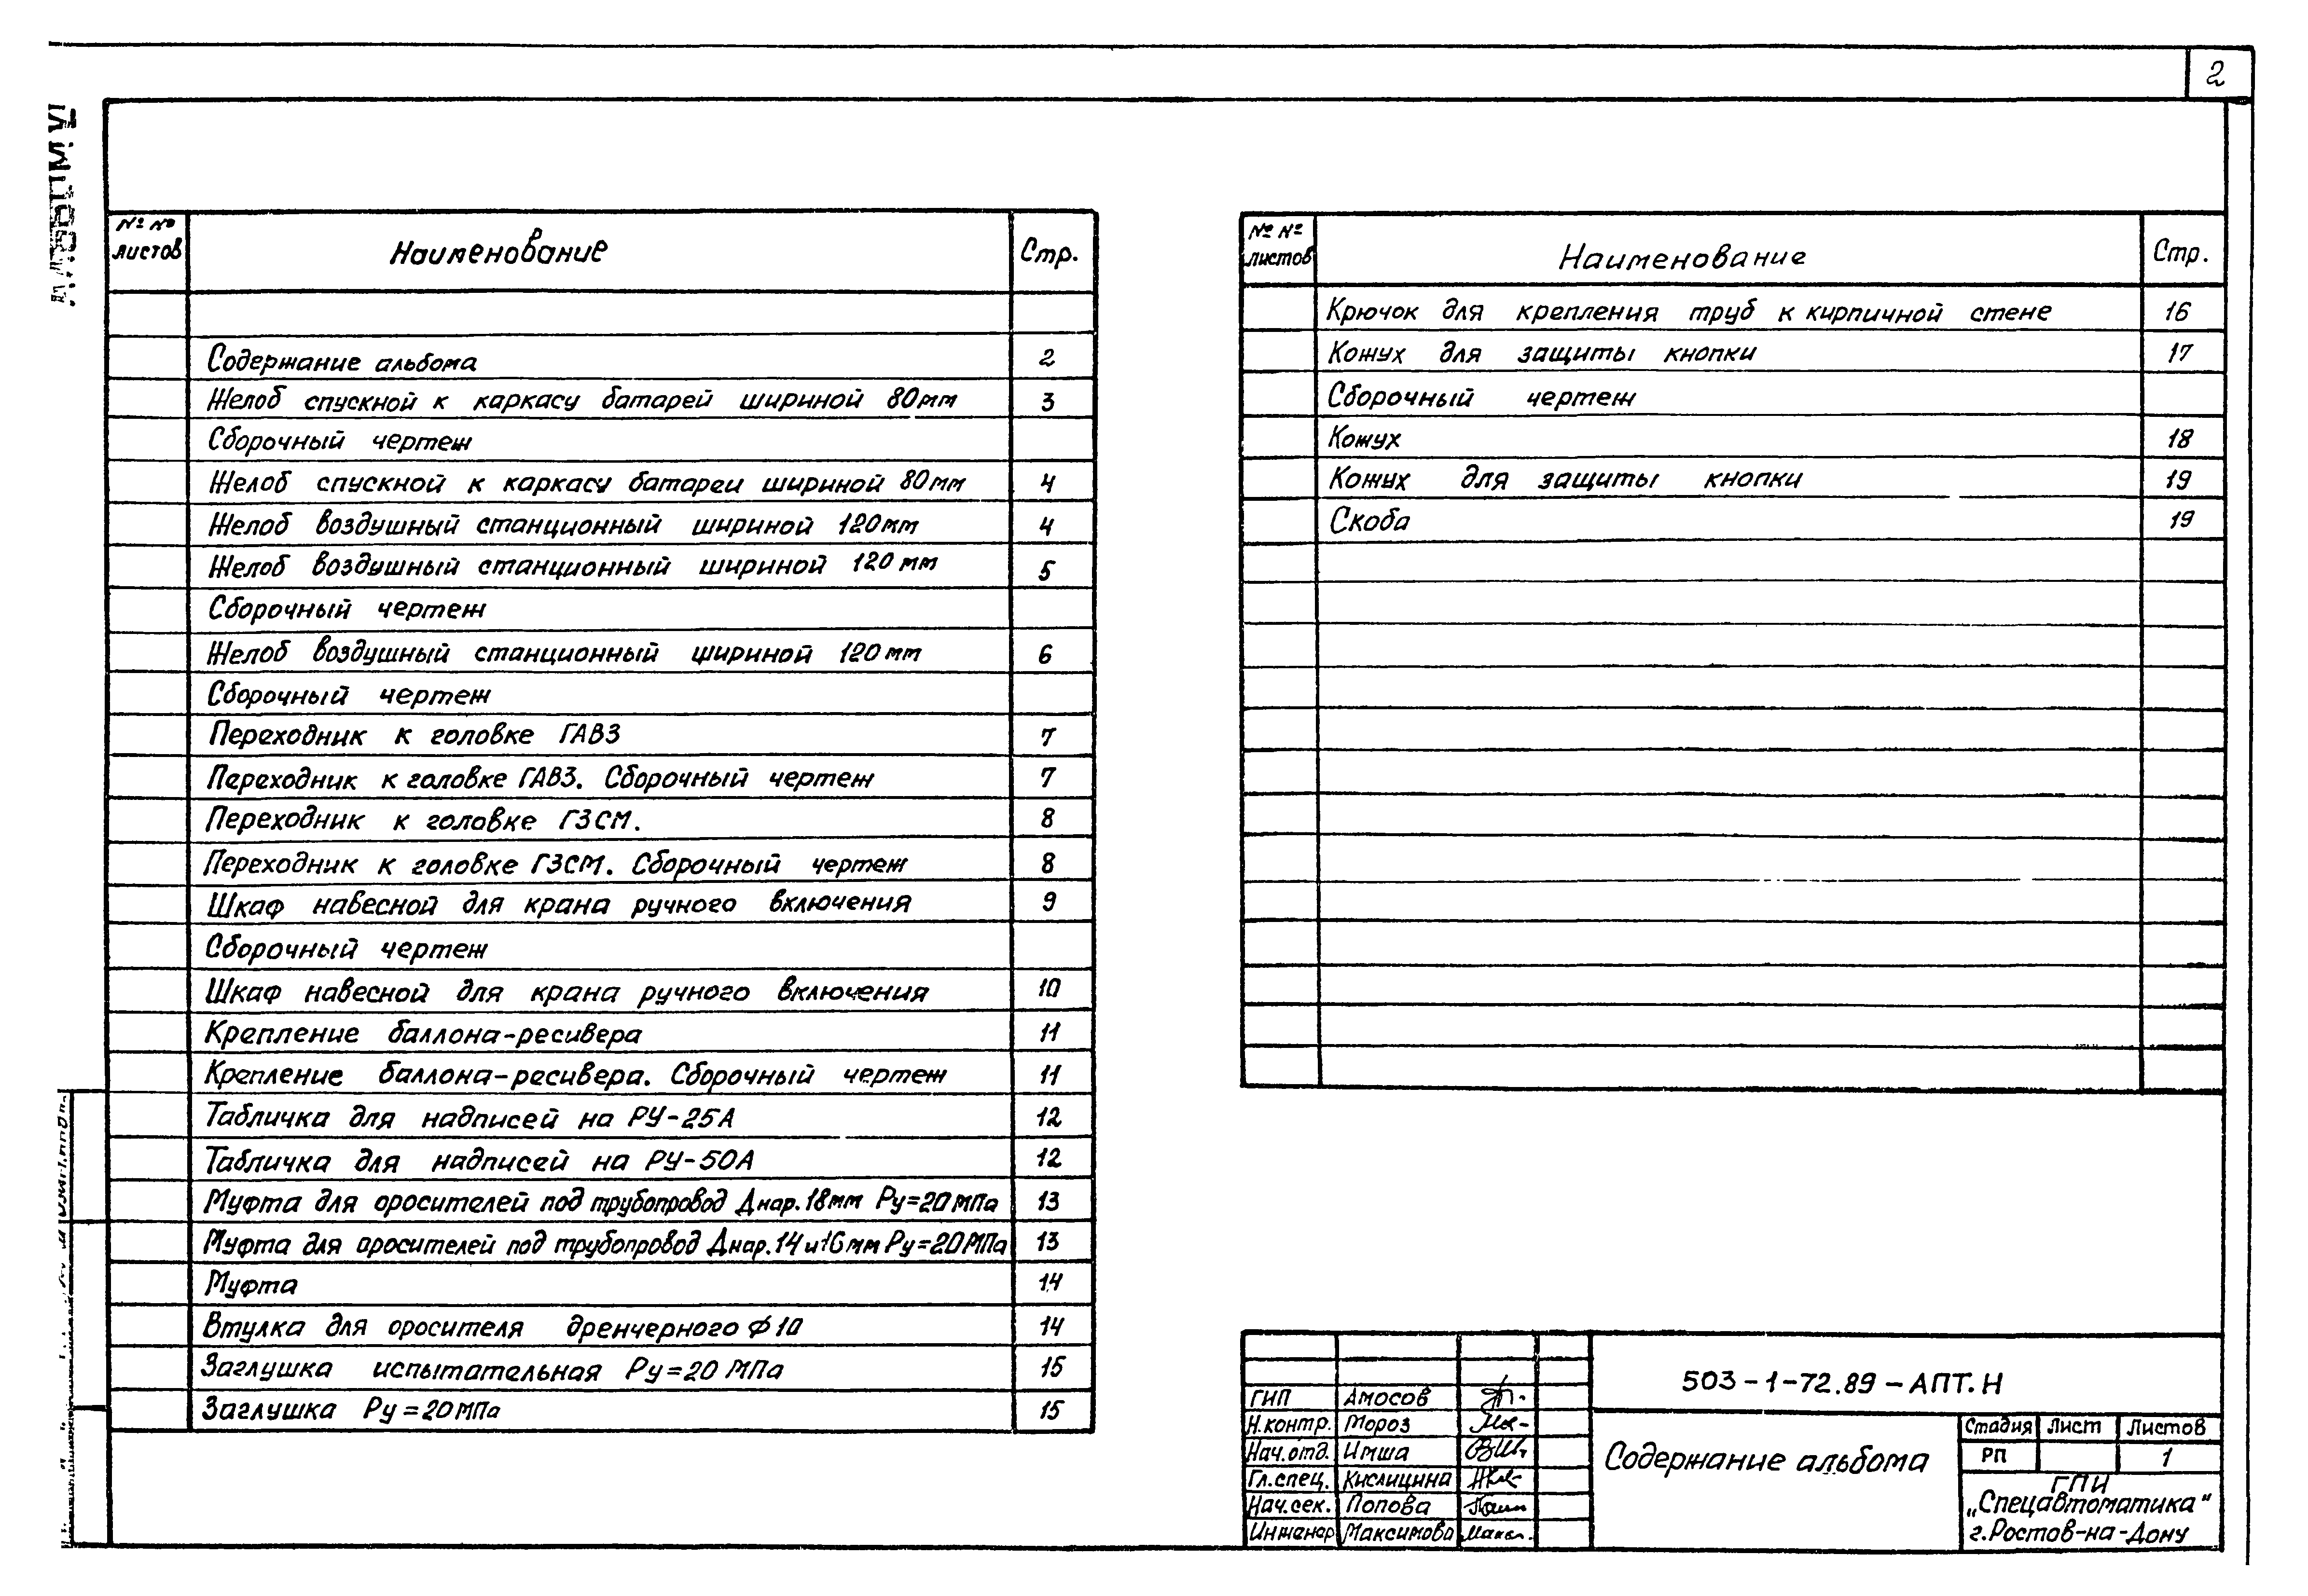 2
№ № листов Наименование Стр.
Содержание альбома 2
Желоб спускной к каркасу батарей шириной 80мм 3
Сборочный чертеж
Желоб спускной к каркасу батареи шириной 80мм 4
Желоб воздушный станционный шириной 120мм 4
Желоб воздушный станционный шириной 120мм 5
Сборочный чертеж
Желоб воздушный станционный шириной 120мм 6
Сборочный чертеж
Переходник к головке ГАВЗ 7
Переходник к головке ГАВЗ. Сборочный чертеж 7
Переходник к головке ГЗСМ. 8
Переходник к головке ГЗСМ. Сборочный чертеж 8
Шкаф навесной для крана ручного включения 9
Сборочный чертеж
Шкаф навесной для крана ручного включения 10
Крепление баллона-ресивера 11
Крепление баллона-ресивера. Сборочный чертеж 11
Табличка для надписей на РУ-25А 12
Табличка для надписей на РУ-50А 12
Муфта для оросителей под трубопровод Днар.18мм Ру=20МПа 13
Муфта для оросителей под трубопровод Днар.14и16мм Ру=20МПа 13
Муфта 14
Втулка для оросителя дренчерного ф10 14
Заглушка испытательная Ру=20 МПа 15
Заглушка Ру=20МПа 15
№ № листов Наименование Стр.
Крючок для крепления труб к кирпичной стене 16
Кожух для защиты кнопки 17
Сборочный чертеж
Кожух 18
Кожух для защиты кнопки 19
Скоба 19
503-1-72.89-АПТ.Н
ГИП Амосов
Н.контр. Мороз
Нач.отд. Имша
Гл.спец. Кислицина
Нач.сек. Попова
Инженер Максимова
Содержание альбома
Стадия Лист Листов
РП 1
ГПИ
„Спецавтоматика"
г.Ростов-на-Дону